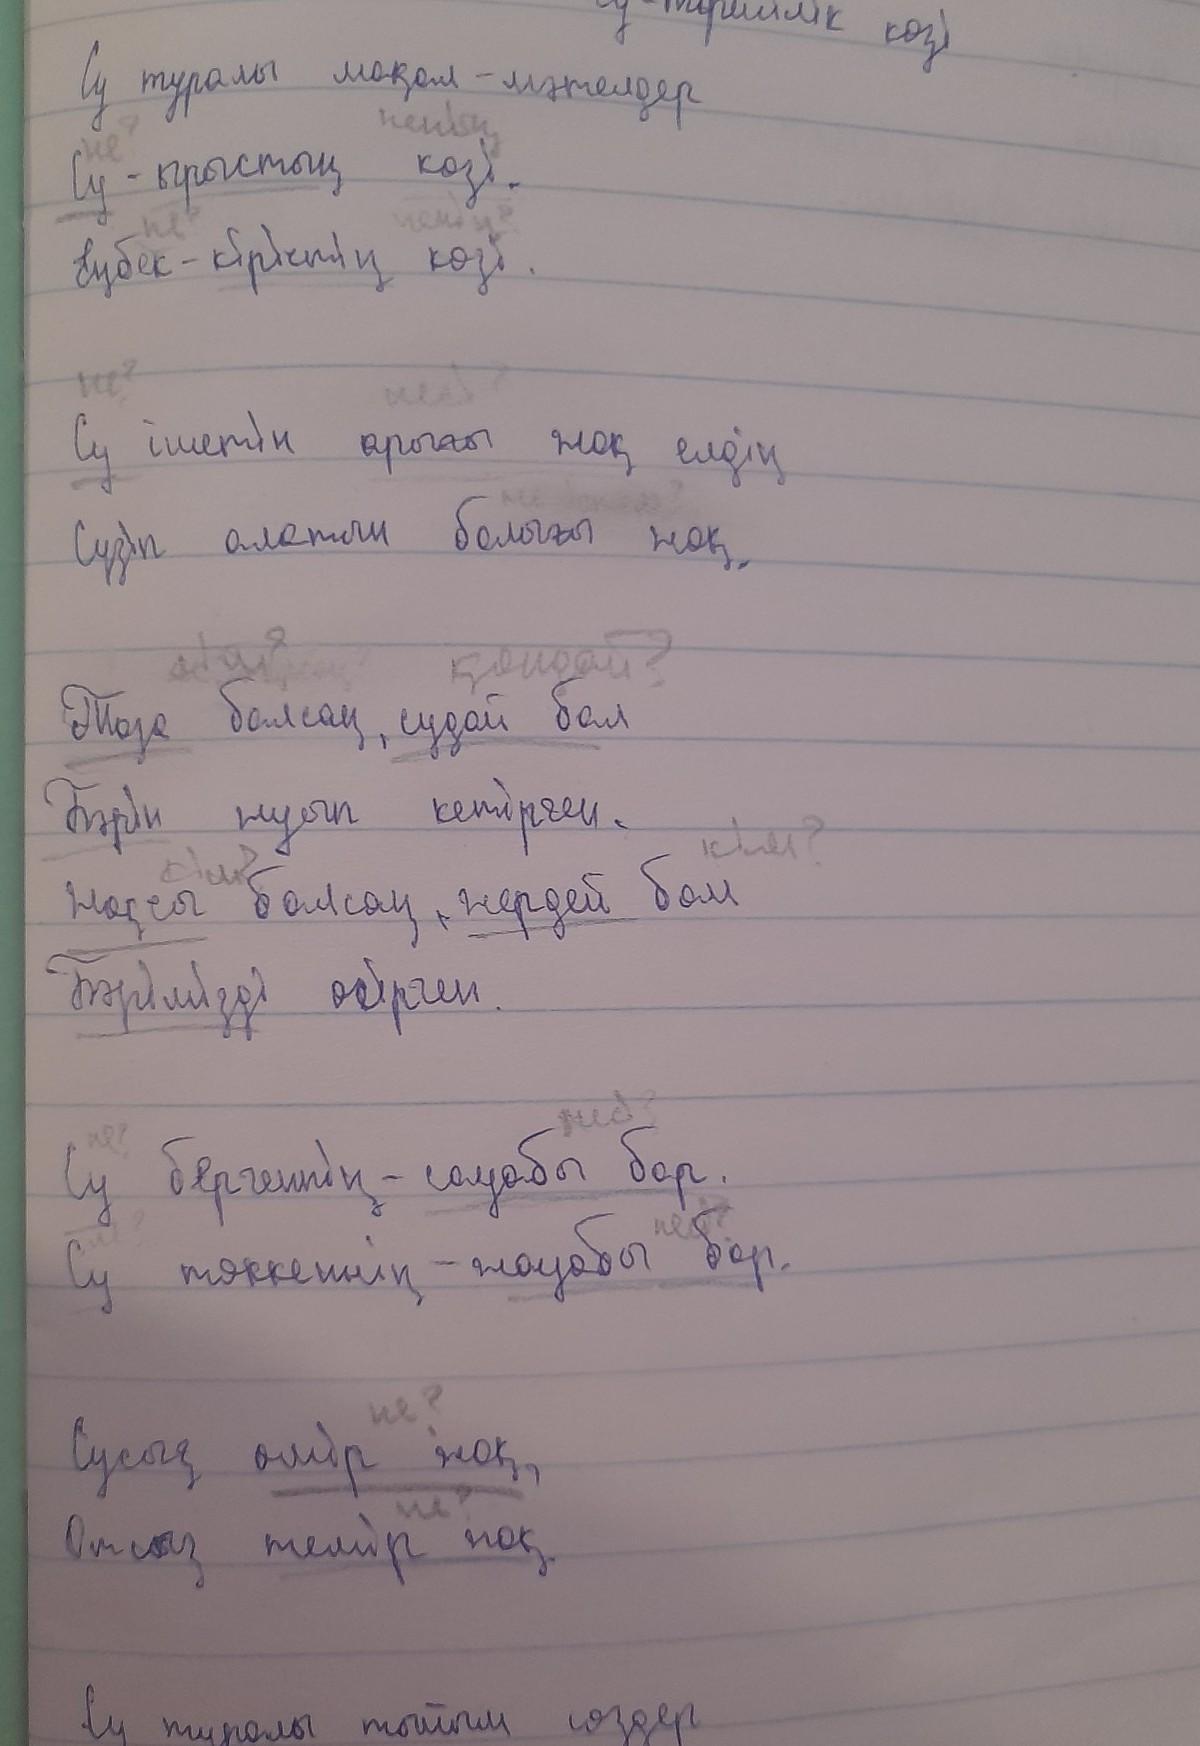 Су-тіршілік көзі
Су туралы мақал-мәтелдер
не? ненің
Су-ырыстың көзі.
не? ненің?
Еңбек-кірістің көзі.
не? неді?
Су ішетін арығы жоқ елдің
Сүзіп алатын балығы жоқ.
қандай?
Таза болсаң, судай бол
Бәрін жуып кетірген.
кім? кім?
Жақсы болсаң, жердей бол
Бәрімізді өсірген.
не? неді?
Су бергеннің-сауабы бар.
не? неді?
Су төккеннің-жауабы бар.
не?
Сусыз өмір жоқ,
не?
Отсыз темір жоқ.
Су туралы тыйым сөздер